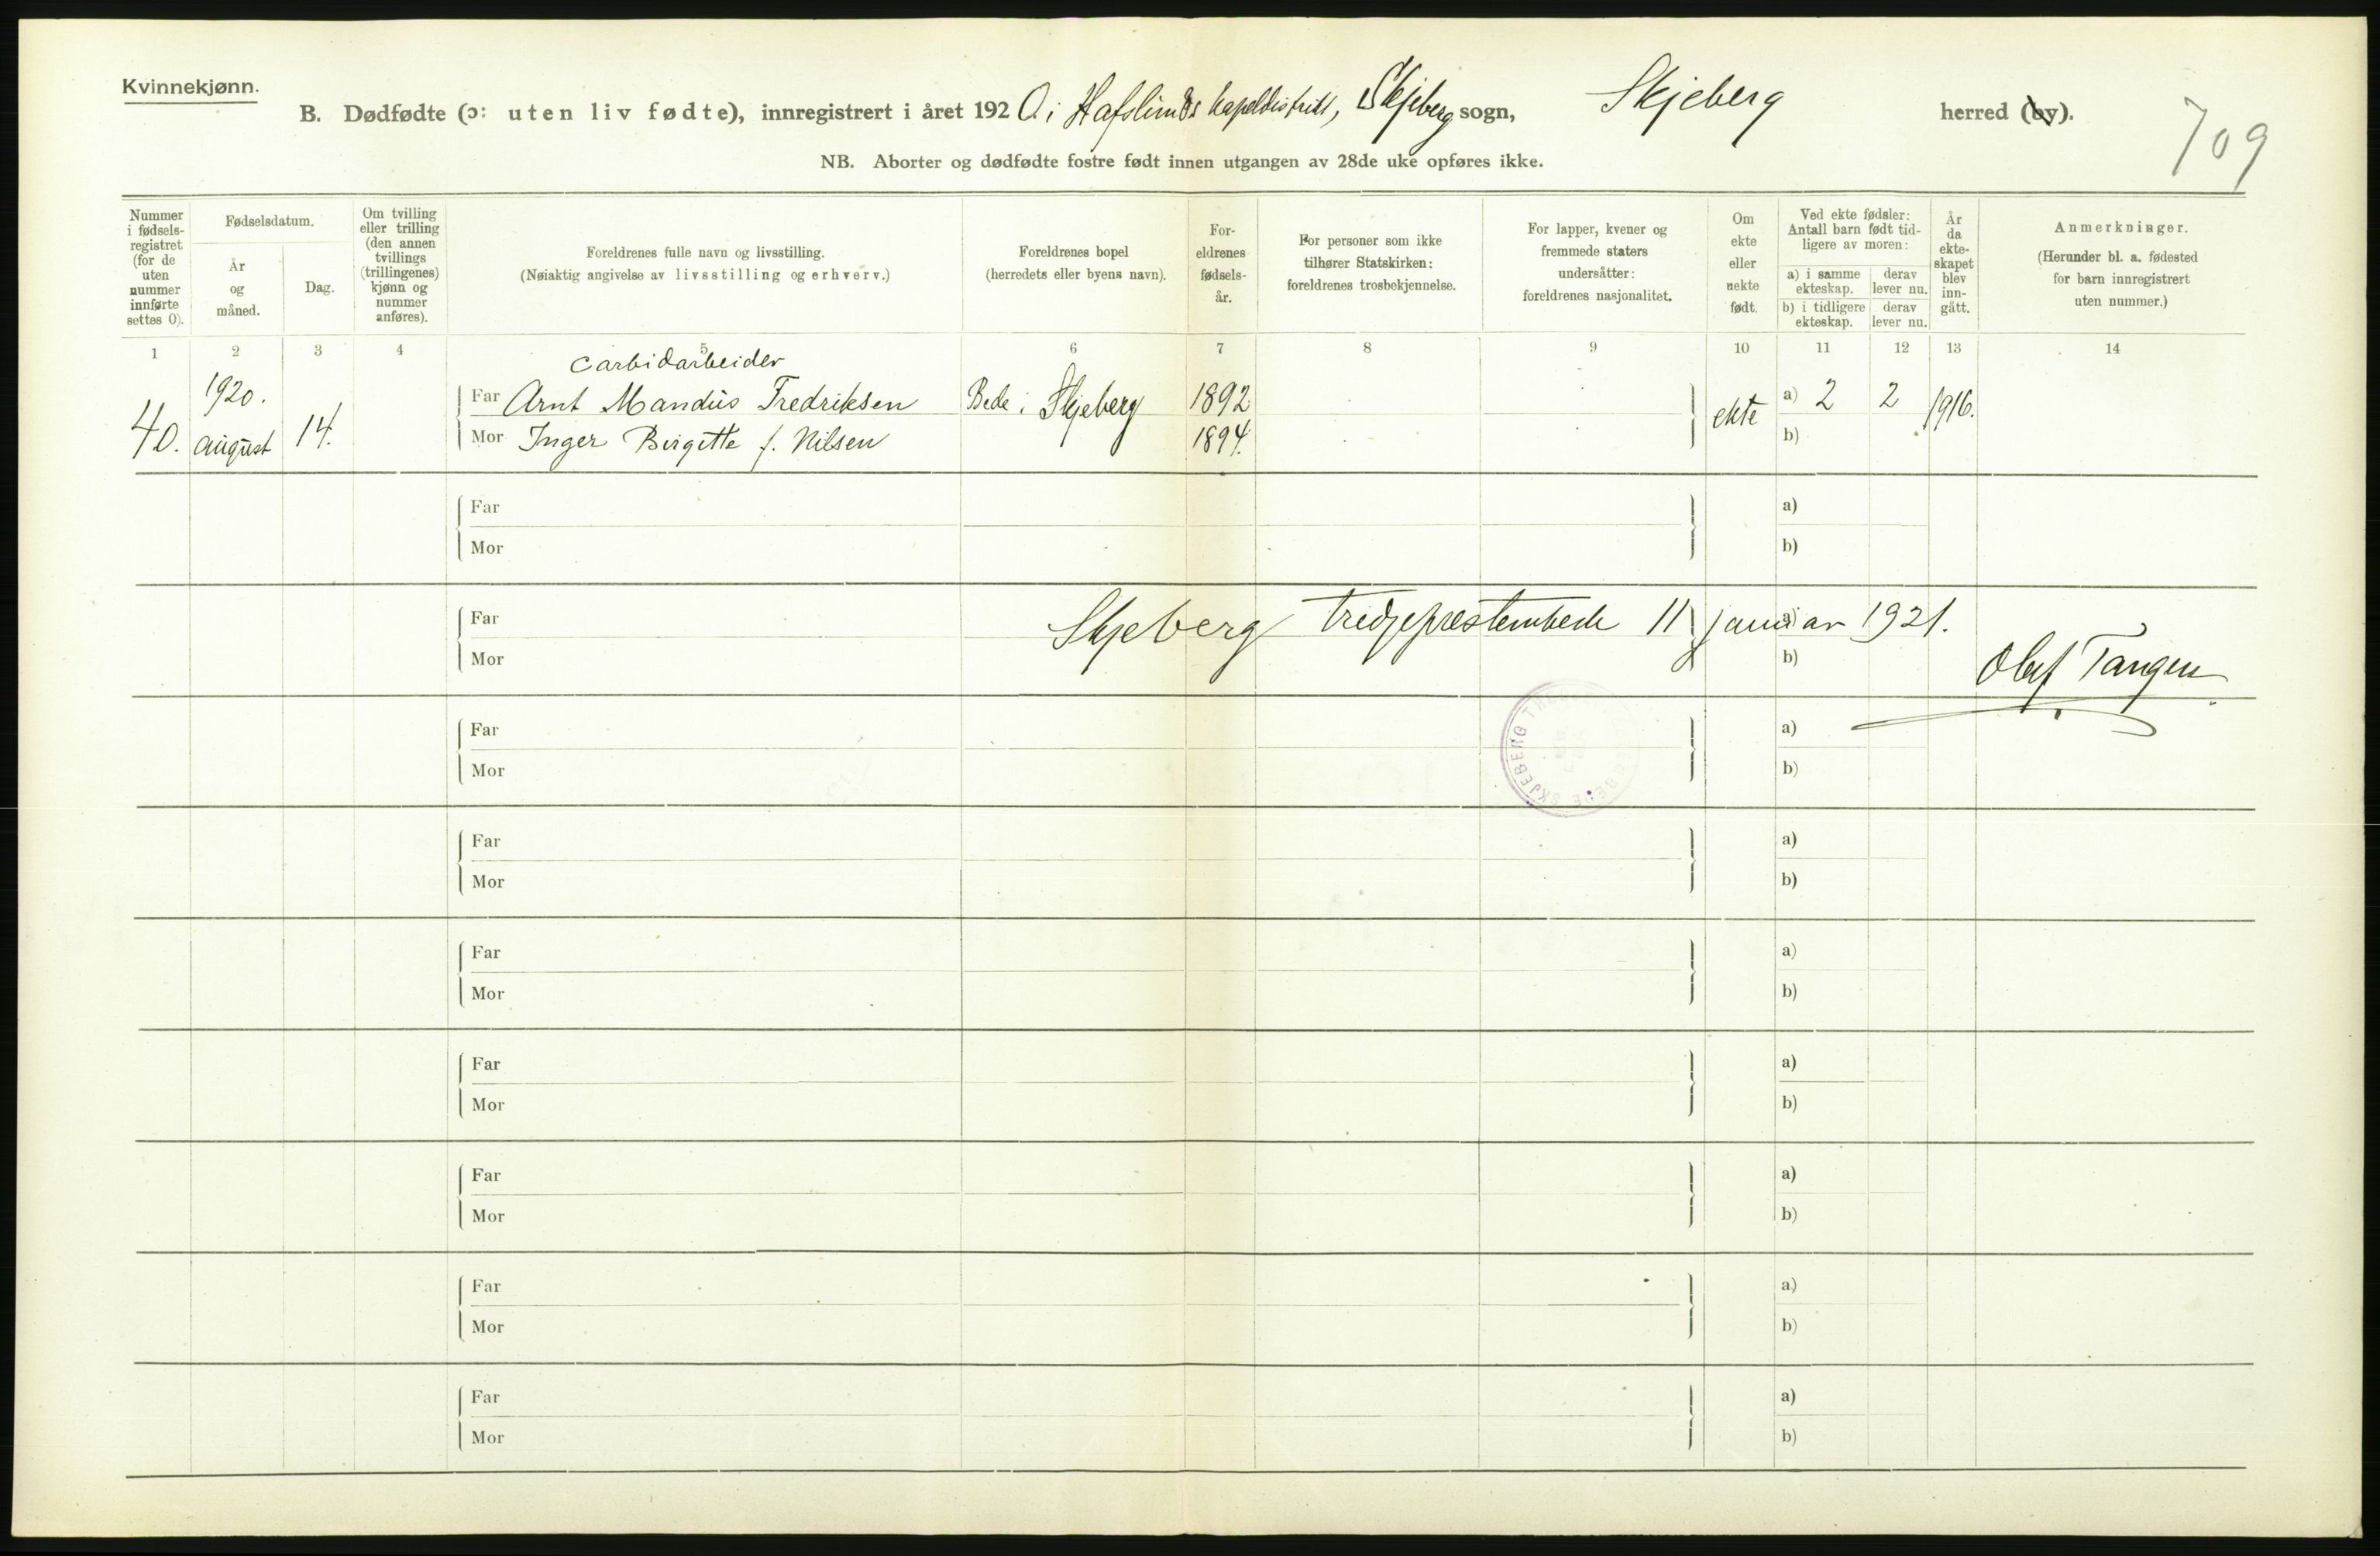 Kvinnekjønn.
B. Dødfødte (ɔ: uten liv fødte), innregistrert i året 1920. i Hafslunds kapeldistrikt, Skjeberg sogn, Skjeberg herred (by).
709
NB. Aborter og dødfødte fostre født innen utgangen av 28de uke opføres ikke.
Nummer i fødselsregistret (for de uten nummer innførte settes 0).
Fødselsdatum.
År og måned.
Dag.
Om tvilling eller trilling (den annen tvillings (trillingenes) kjønn og nummer anføres).
Foreldrenes fulle navn og livsstilling.
(Nøiaktig angivelse av livsstilling og erhverv.)
Foreldrenes bopel
(herredets eller byens navn).
Foreldrenes fødselsår.
For personer som ikke tilhører Statskirken: foreldrenes trosbekjennelse.
For lapper, kvener og fremmede staters undersåtter: foreldrenes nasjonalitet.
Om ekte eller uekte født.
Ved ekte fødsler: Antall barn født tidligere av moren:
a) i samme ekteskap. derav lever nu.
b) i tidligere ekteskap. derav lever nu.
År da ekteskapet blev inngått.
Anmerkninger.
(Herunder bl. a. fødested for barn innregistrert uten nummer.)
1 2 3 4 5 6 7 8 9 10 11 12 13 14
Carbidarbeider
40. 1920. august 14.
Far Arnt Mandius Fredriksen Bede i Skjeberg 1892 ekte a) 2 2 1916.
Mor Inger Birgitte f. Nilsen 1894. b)
Far a)
Mor b)
Far Skjeberg 11 januar 1921. a)
Mor b) Olaf Tangen
SKJEBERG
Far a)
Mor b)
Far a)
Mor b)
Far a)
Mor b)
Far a)
Mor b)
Far a)
Mor b)
Far a)
Mor b)
Far a)
Mor b)